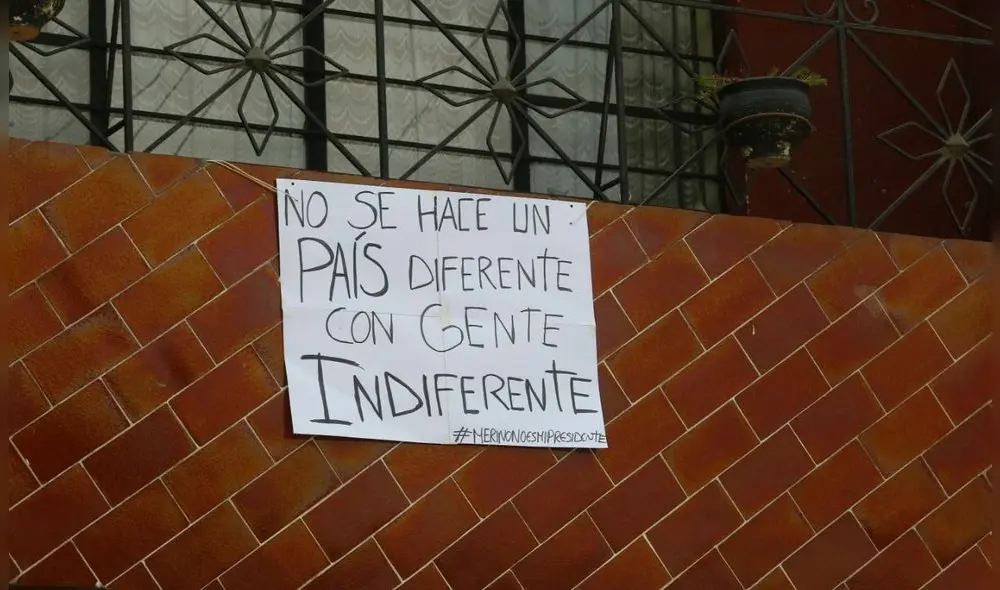 NO SE HACE UN
PAÍS DIFERENTE
CON GENTE
INDIFERENTE
#MERINONOESMIPRESIDENTE